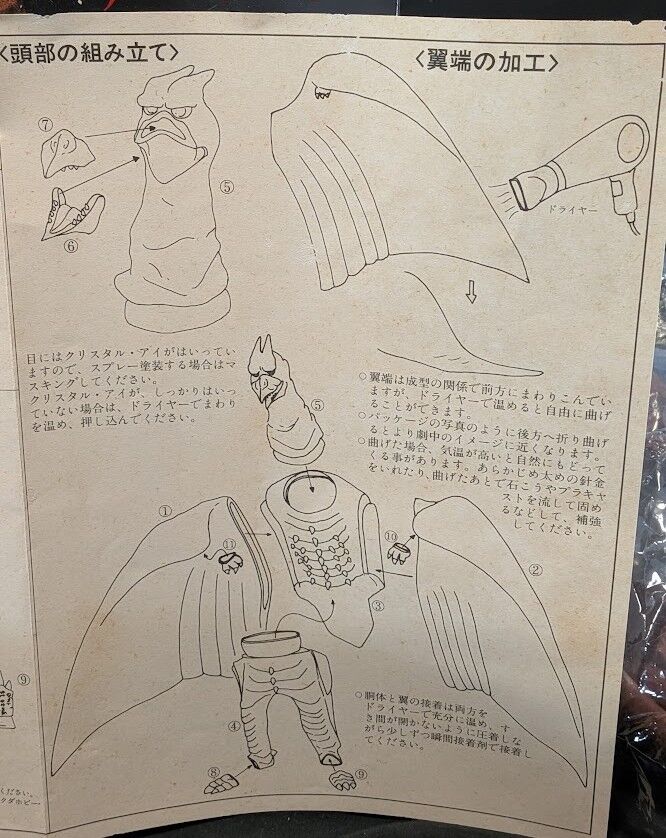 〈頭部の組み立て〉
⑦
⑥
⑤
目にはクリスタル・アイがはいってい
ますので、スプレー塗装する場合はマ
スキングしてください。
クリスタル・アイが、しっかりはいっ
ていない場合は、ドライヤーでまわり
を温め、押し込んでください。
〈翼端の加工〉
ドライヤー
○翼端は成型の関係で前方にまわりこんでい
ますが、ドライヤーで温めると自由に曲げ
ることができます。
○パッケージの写真のように後方へ折り曲げ
るとより劇中のイメージに近くなります。
○曲げた場合、気温が高いと自然にもどって
くる事があります。あらかじめ太めの針金
をいれたり、曲げたあとで石こうやプラキャ
ストを流して固め
るなどして、補強
してください。
⑤
①
⑪
⑩
②
③
④
⑧
⑨
○胴体と翼の接着は両方を
ドライヤーで充分に温め、す
き間が開かないように圧着しな
がら少しずつ瞬間接着剤で接着し
てください。
⑨
ください。
クダホビー